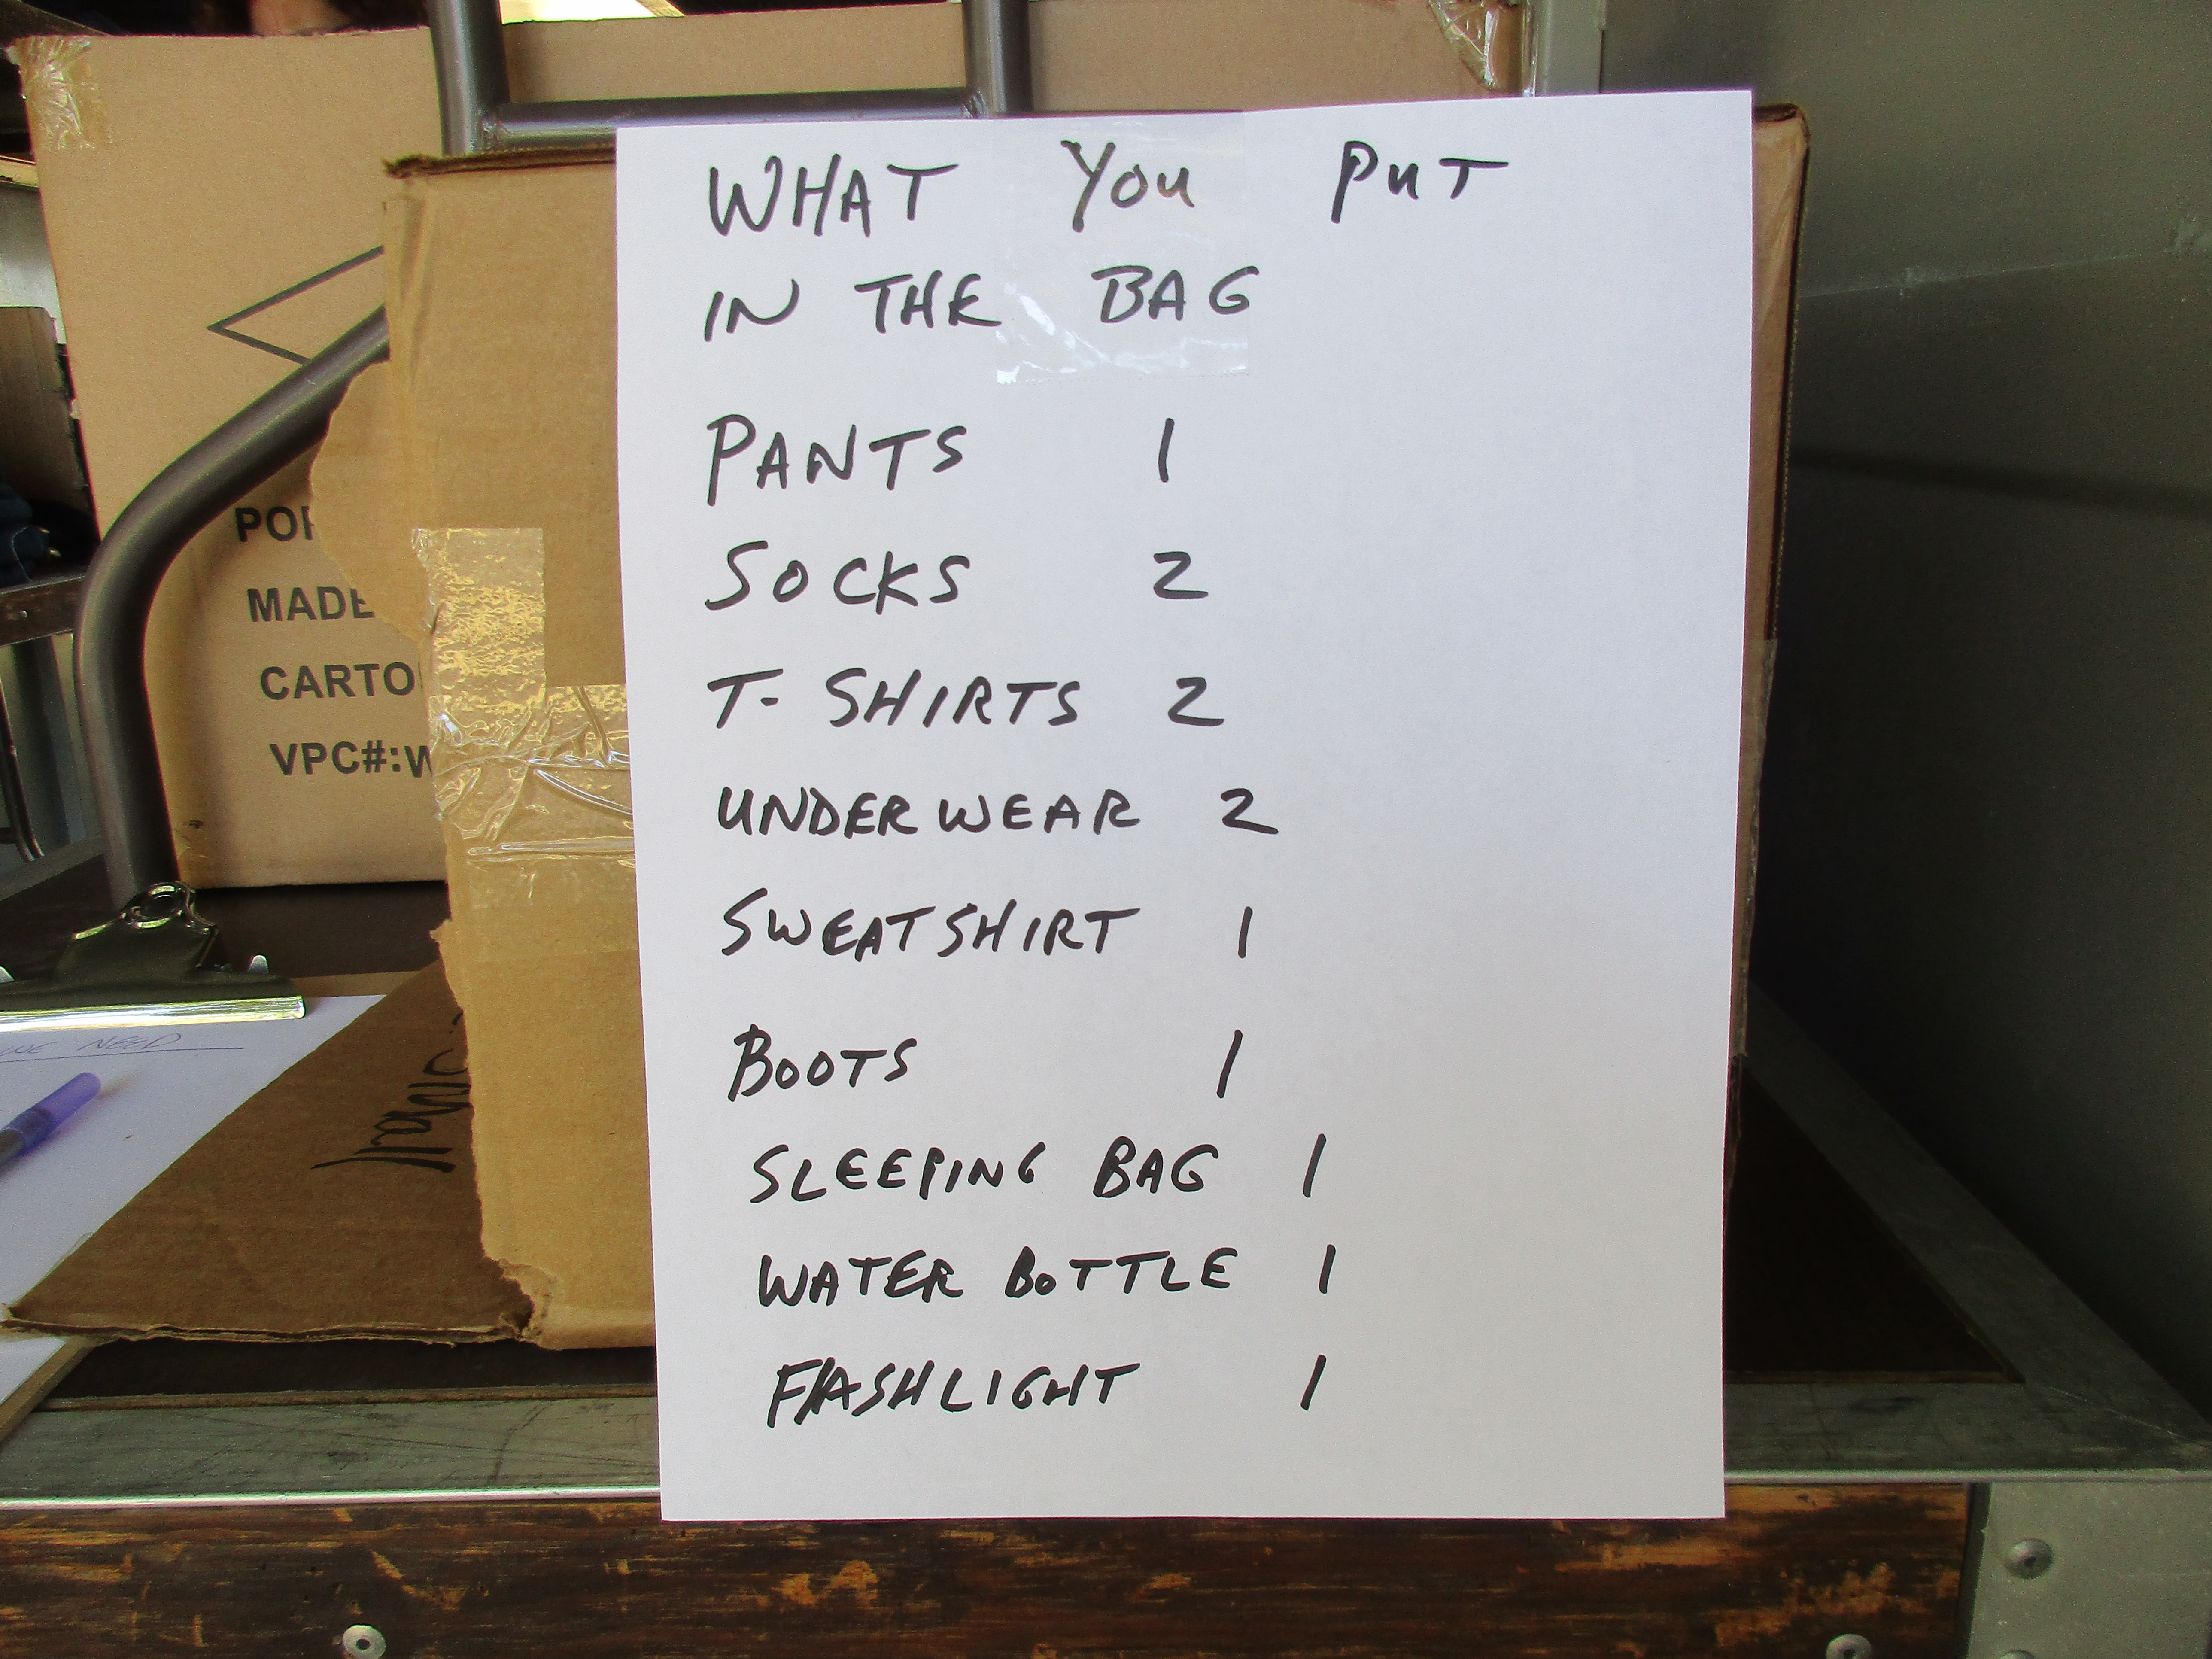 WHAT YOU PUT
IN THE BAG
PANTS 1
SOCKS 2
T-SHIRTS 2
UNDERWEAR 2
SWEATSHIRT 1
BOOTS 1
SLEEPING BAG 1
WATER BOTTLE 1
FLASHLIGHT 1
MADE
VPC#:W
WE NEED